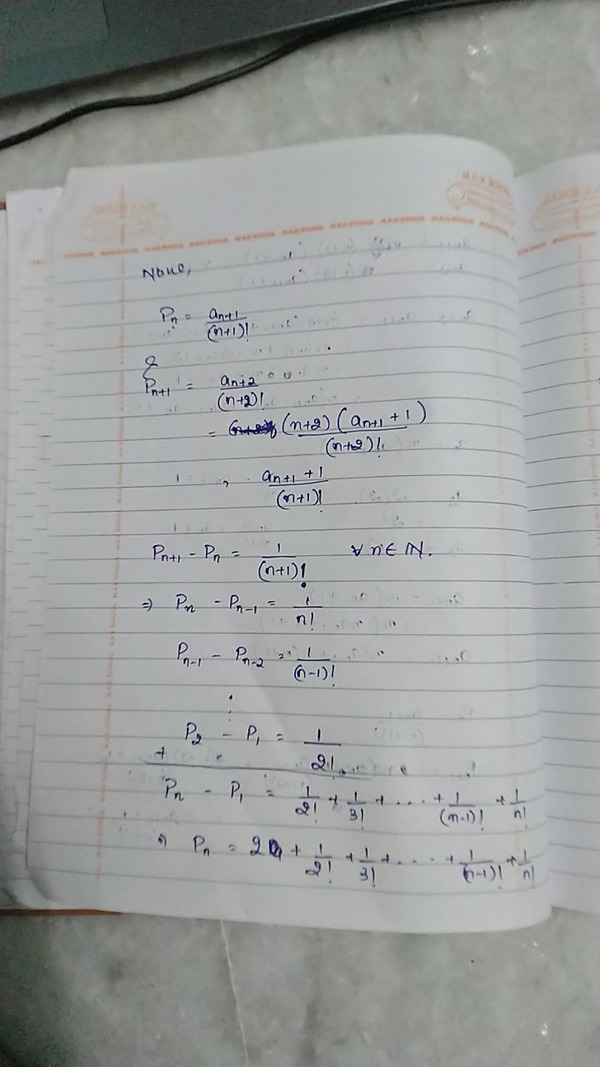 Now,
Pn = an+1/(n+1)!
&
Pn+1 = an+2/(n+2)!
= (n+2)(an+1 + 1)/(n+2)!
= an+1 + 1/(n+1)!
Pn+1 - Pn = 1/(n+1)! ∀ n ∈ IN.
⇒ Pn - Pn-1 = 1/n!
Pn-1 - Pn-2 = 1/(n-1)!
⋮
P2 - P1 = 1/2!
+
Pn - P1 = 1/2! + 1/3! + .... + 1/(n-1)! + 1/n!
⇒ Pn = 2 + 1/2! + 1/3! + .... + 1/(n-1)! + 1/n!